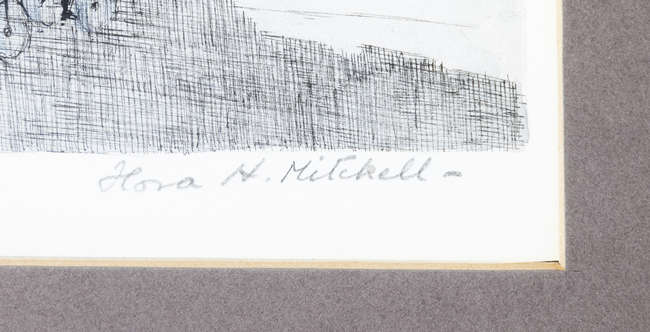 Flora H. Mitchell -